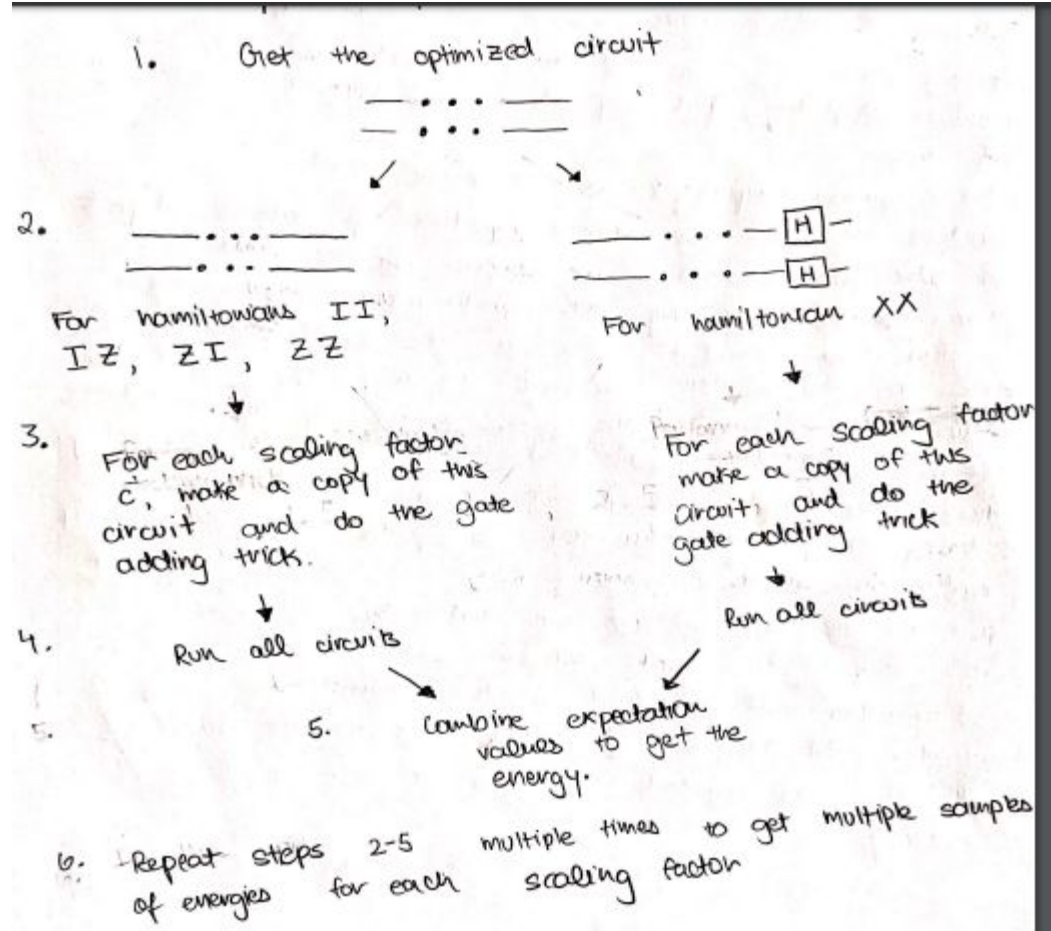 1. Get the optimized circuit
2.
H
H
For hamiltonians II,
IZ, ZI, ZZ
For hamiltonian XX
3.
For each scaling factor
c, make a copy of this
circuit and do the gate
adding trick.
For each scaling factor
make a copy of this
circuit, and do the
gate adding trick
4.
Run all circuits
Run all circuits
5.
5. Combine expectation
values to get the
energy.
6. Repeat steps 2-5 multiple times to get multiple samples
of energies for each scaling factor